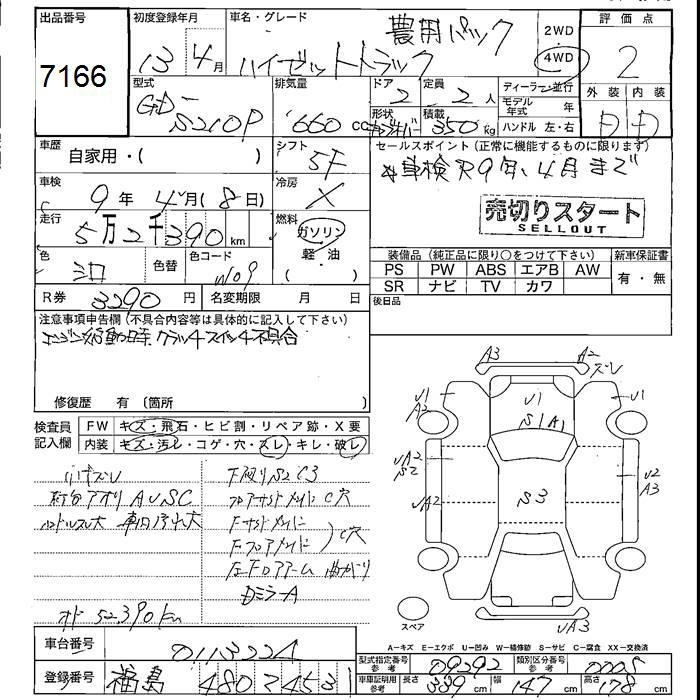 出品番号
7166
初度登録年月
13年4月
車名・グレード
ハイゼットトラック
農用パック
2WD
4WD
評価点
2
外装 内装
D D
型式
GD-
S210P
排気量
660 cc
ドア
2
定員
2 人
形状
積載
350 kg
ディーラー・並行
モデル年式 年
ハンドル 左・右
車歴
自家用・( )
シフト
5F
セールスポイント (正常に機能するものに限ります)
車検R9年、4月まで
売切りスタート
SELLOUT
車検
9年 4月 (8日)
冷房
X
走行
5万2千390 km
燃料
ガソリン
軽・油
( )
色
シロ
色替
色コード
W09
装備品 (純正品に限り○をつけて下さい)
新車保証書
PS PW ABS エアB AW
SR ナビ TV カワ
有・無
R券
3290 円
名変期限 月 日
後日品
注意事項申告欄 (不具合内容等は具体的に記入して下さい)
エンジン始動時、クラッチスイッチ不具合
修復歴 有 (箇所 )
検査員記入欄
FW キズ・飛石・ヒビ割・リペア跡・X要
内装 キズ・汚レ・コゲ・穴・スレ・キレ・破レ
小キズレ
下廻りS2 C3
AUSC
ハンドルスレ大
C穴
C穴
曲がり
DミラーA
オド 52,390km
A3
A2
ズレ
U1
A2
U1
U1
S1A1
UA2
S2
UA2
S3
U2
A3
UA3
スペア
A−キズ E−エクボ U−凹み W−補修跡 S−サビ C−腐食 XX−交換済
車台番号
0113224
型式指定番号 参考
09292
類別区分番号 参考
0005
登録番号
福島 480 た 453
車庫証明用 参考
長 339 cm
幅 147 cm
高さ 178 cm